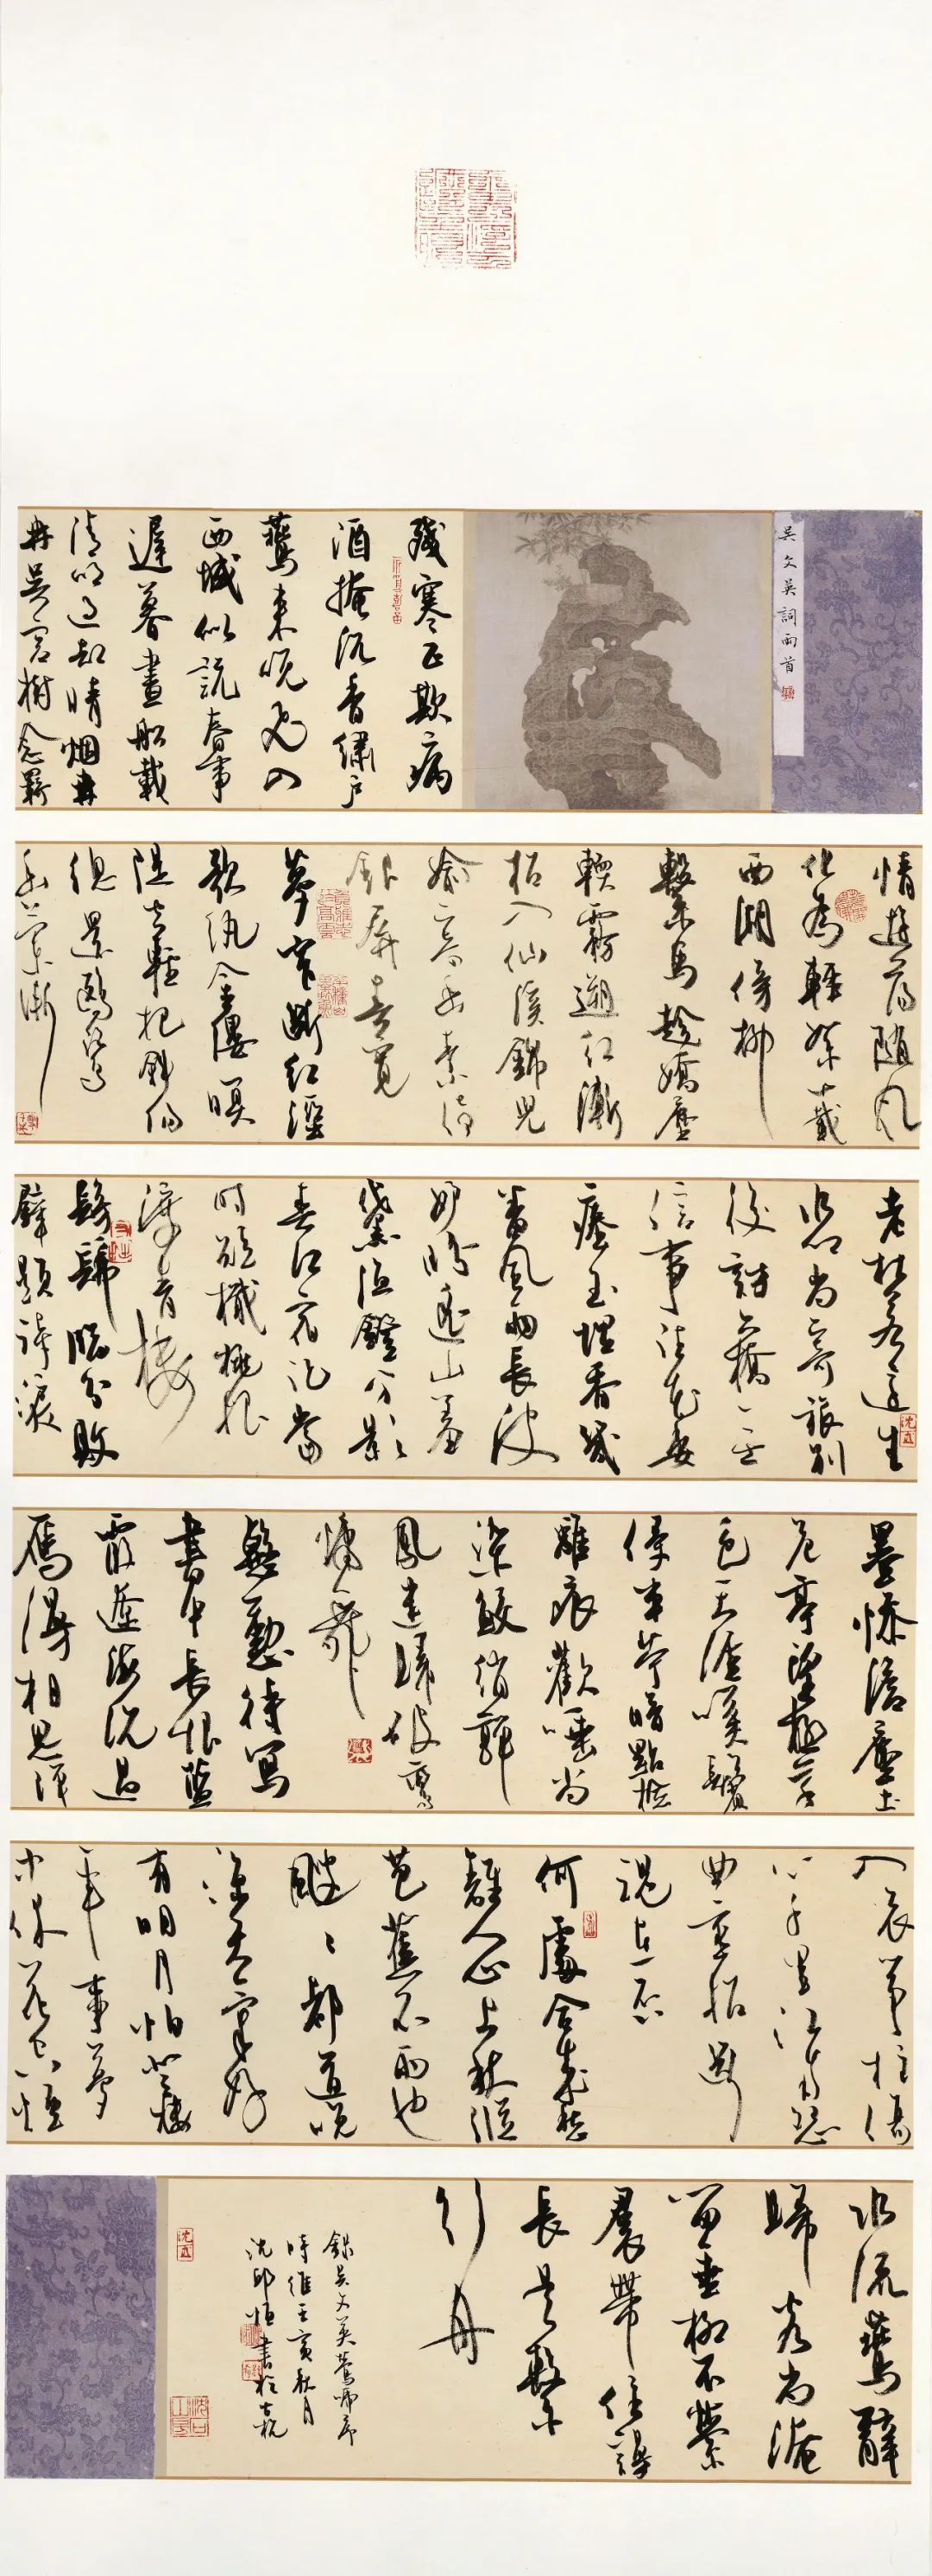 吳文英詞兩首
殘寒正欺病
酒掩沉香繡户
燕来晚飛入
西城似説春事
遲暮畫船載
清明過却晴烟冉
冉吴宫樹念羇
情遊蕩隨風
化為輕絮十載
西湖傍柳
繫馬趁嬌塵
輭霧遡紅漸
招入仙溪錦兒
偷寄幽素倚
銀屏春寬
夢窄斷紅溼
歌紈金縷暝
隄空輕把斜陽
總還鷗鷺
幽蘭漸
老杜若還生
水鄉尚寄旅别
後訪六橋無
信事往花委
瘞玉埋香幾
番風雨長波
妒盼遥山羞
黛漁鐙分影
春江宿記當
時短檝桃根
渡青樓
髣髴臨分敗
壁題詩淚
墨慘澹塵土
危亭望極草
色天涯嘆鬢
侵半苧暗點檢
離痕歡唾尚
染鮫綃嚲
鳳迷歸破鸞
慵舞
慇懃待寫
書中長恨藍
霞遼海沉過
雁漫相思彈
入哀筝柱傷
心千里江南怨
曲重招斷
魂在否
何處合成愁
離人心上秋縱
芭蕉不雨也
颼〻都道晚
涼天氣好
有明月怕登樓
年事夢
中休花空煙
水流燕辭
歸客尚淹
留垂柳不縈
裙帶住謾
長是繫
行舟
録吴文英鶯啼序
時維壬寅秋月
沈邱恒書於古杭